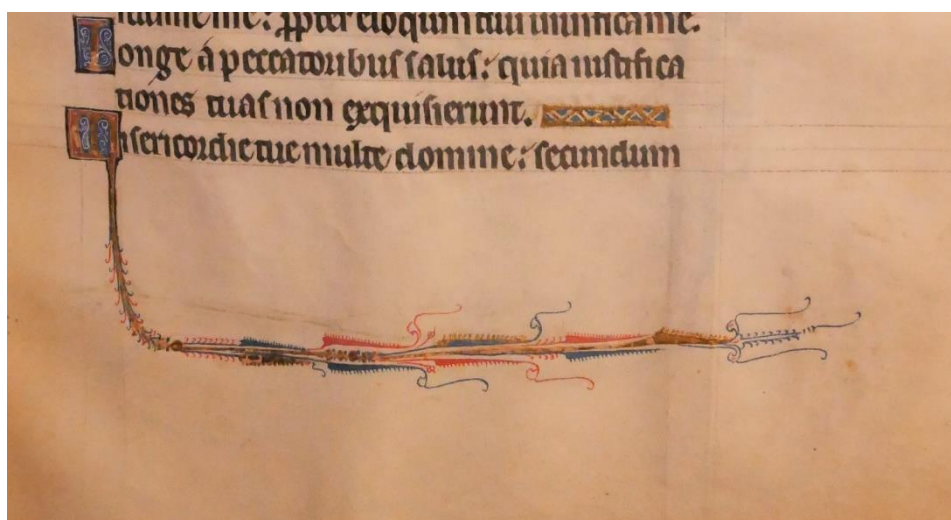 me: ꝓpter eloquium tuum uiuifica me.
Longe a peccatoribus salus: quia iustifica
tiones tuas non exquisierunt.
Misericordie tue multe domine: secundum